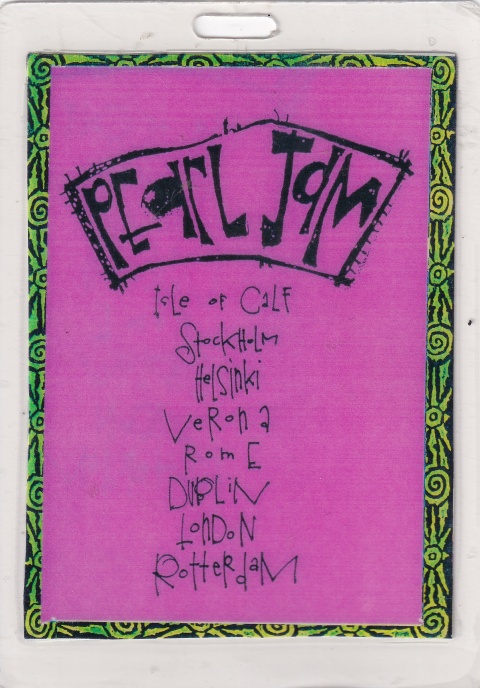 PEarL JaM
Isle of CaLF
StockHoLM
HeLSinki
VeRona
RomE
DUBLiN
LonDoN
RotterdaM